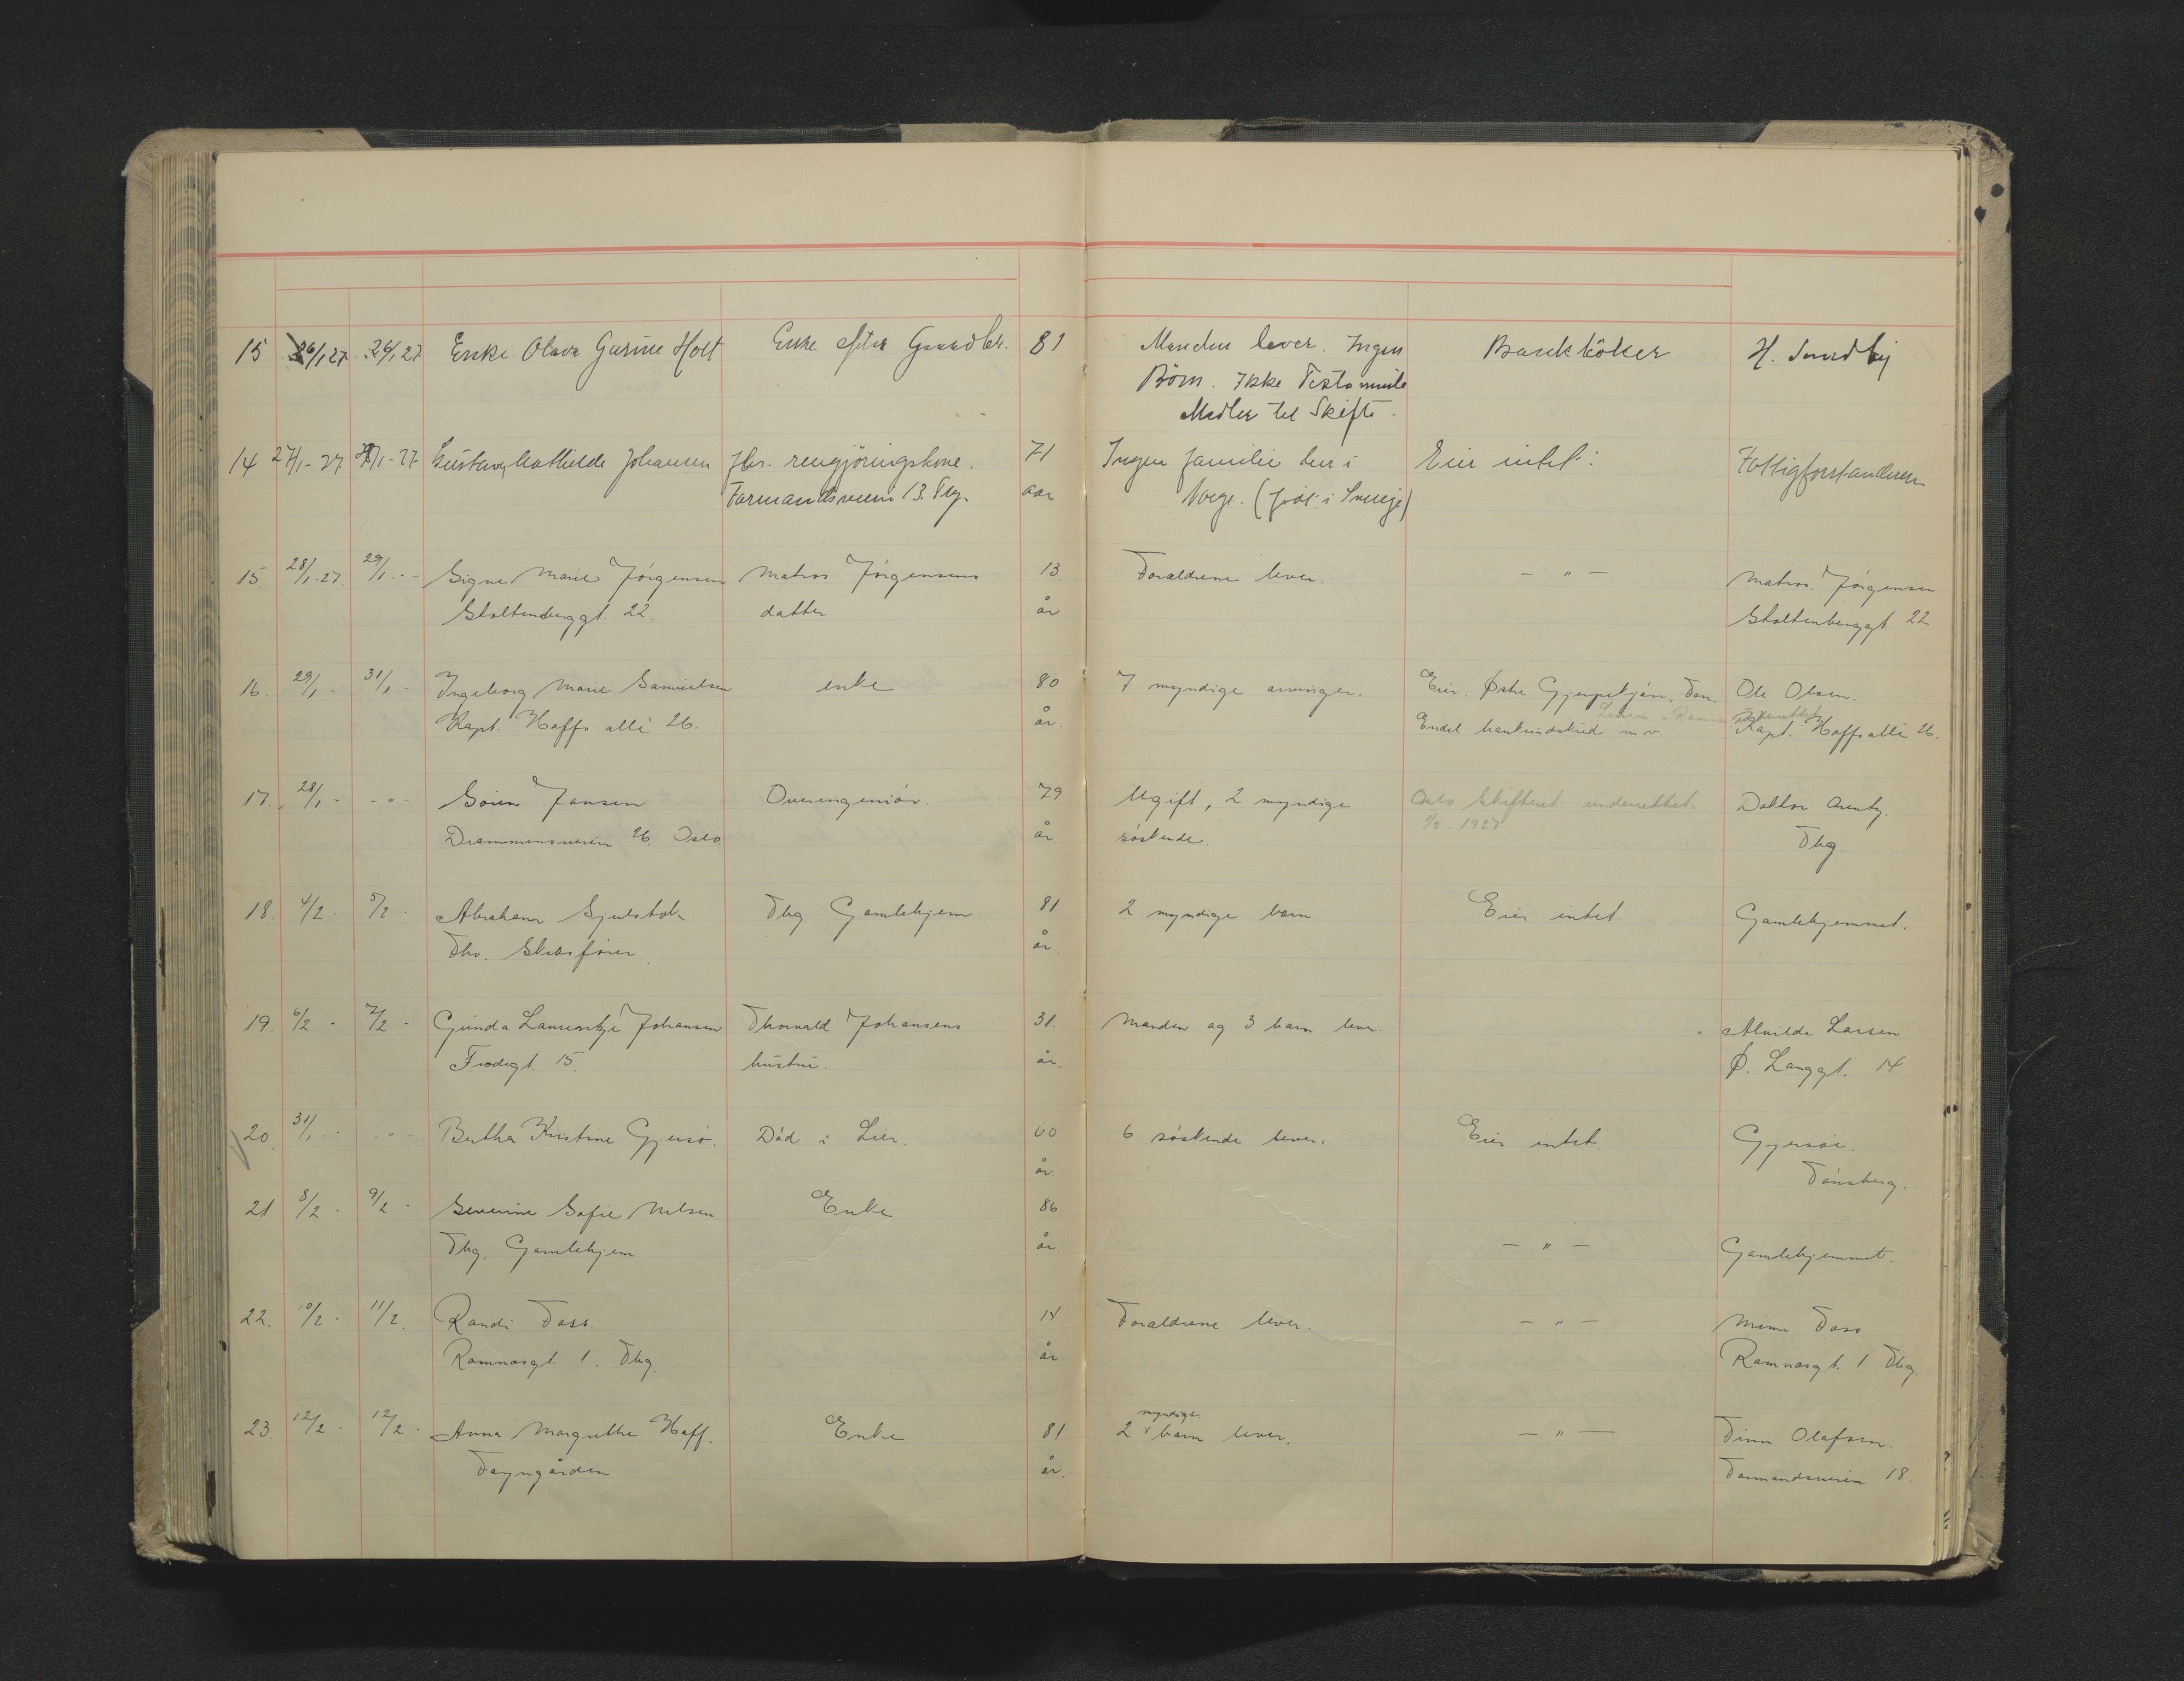 15 26/1 27 26/1 27 Enke Olava Gurine Holt Enke efter Gaardbr. 81 Manden lever. Ingen Bankböker H. Sundby
Börn. Ikke Testamente
Midler til Skifte.
14 27/1-27 27/1-27 Gustava Mathilde Johansen fhv. rengjöringskone. 71 Ingen familie her i Eier intet: Fattigforstanderen
Farmandsveien 13. Tbg. aar Norge. (född i Sverige)
15. 28/1-27. 29/1 - - Signe Marie Jörgensen Matros Jörgensens 13. Foraldrene lever. - " - Matros. Jörgensen
Stoltenberggt. 22. datter år Stoltenberggt 22
16. 29/1 - 31/1 - Ingeborg Marie Samuelsen enke 80 7 myndige arvinger. Eier. Østre Gjerpekjön, Ole Olsen.
Kapt. Hoffs allé 26. år. Endel bankindskud m v Kapt. Hoffs allé 26.
17. 28/1 - - " - Sören Jansen Overingeniör. 79 Ugift, 2 myndige Oslo Skifteret underrettet. Doktor
Drammensveien 26. Oslo år söskende. 1/2. 1927 Tbg.
18. 4/2 - 5/2 - Abraham Tbg Gamlehjem 81 2 myndige barn Eier intet. Gamlehjemmet.
Fhv. år.
19. 6/2 - 7/2 - Gunda Laurentze Johansen Thorvald Johansens 31. Manden og 3 barn lever. Alvilde Larsen
Frodegt. 15. hustru. år. Ø. Langgt. 14
20 31/1 - - - " - Berthe Kristine Gjersö. Död i Lier. 60 6 söskende lever. Eier intet Gjersöe.
år. Tönsberg.
21 8/2 - 9/2 - Severine Sofie Nilsen Enke 86
Tbg. Gamlehjem år. - " - Gamlehjemmet.
22. 10/2 - 11/2. Randi Foss. 14 Foraldrene lever. - " - Foss.
Ramnasgt. 1. Tbg. år Ramnasgt. 1 Tbg
myndige
23. 12/2 - 12/2 - Anna Margrethe Hoff. Enke 81 2 barn lever. - " - Olafsen.
Fayngården år. Farmandsveien 18.